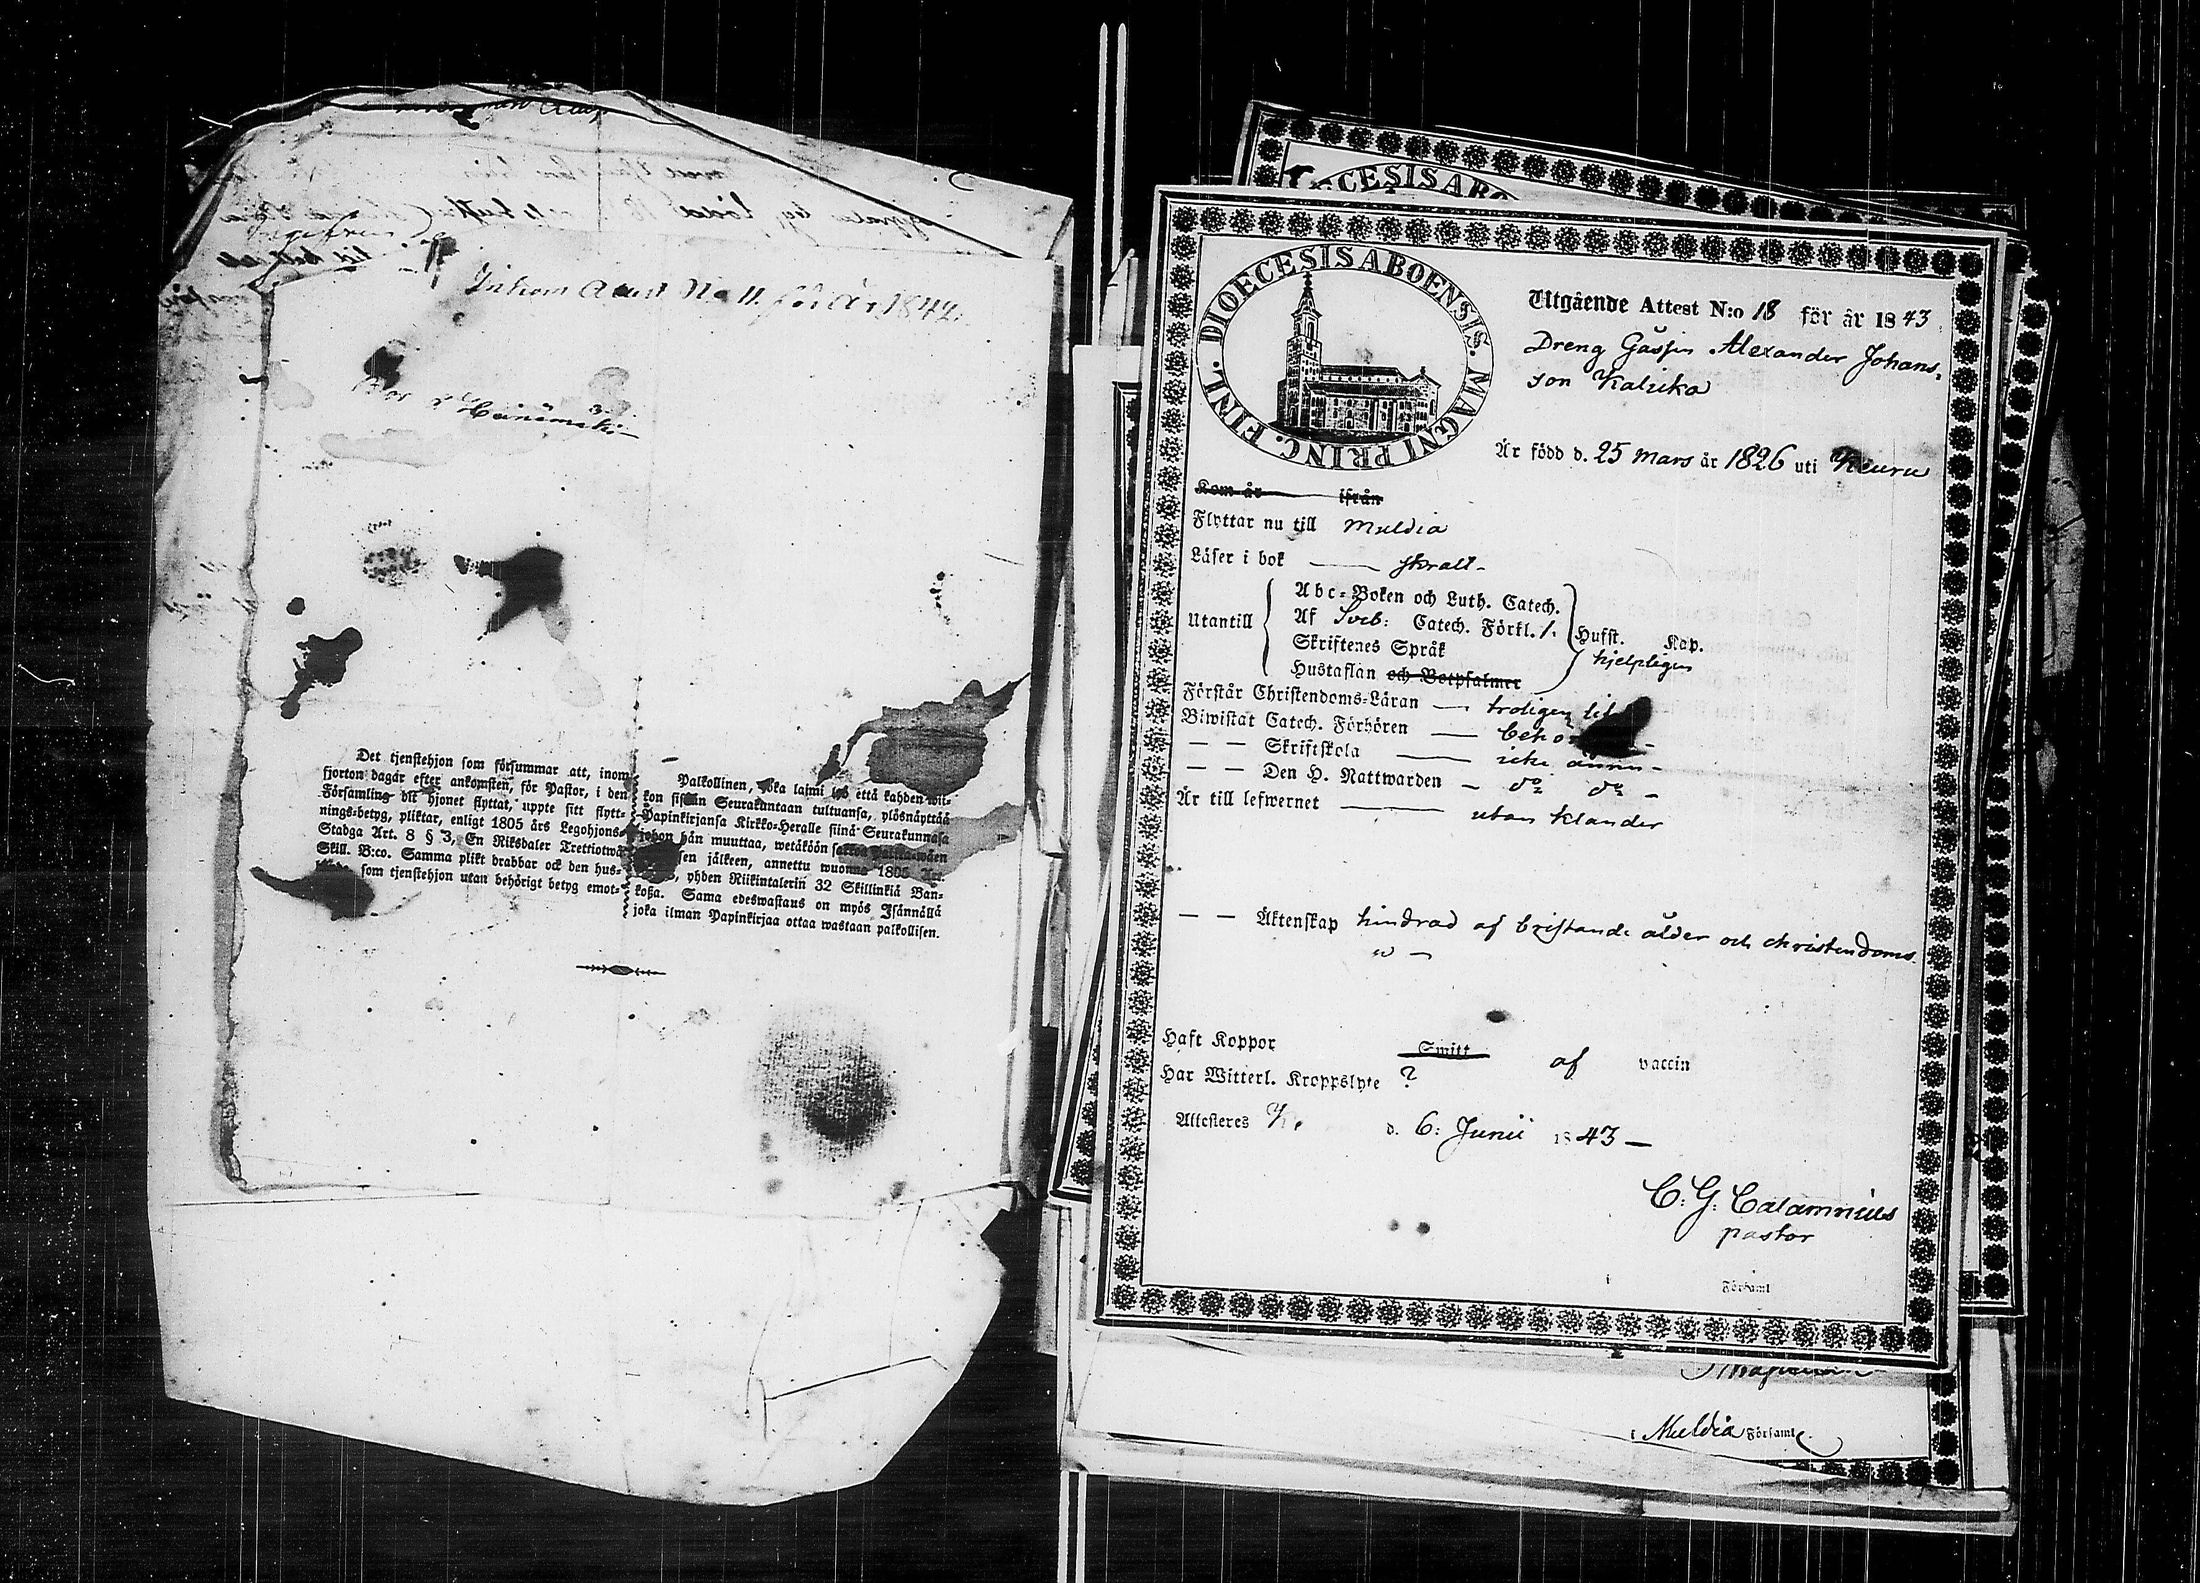 Inkom Attest No 11. för År 1842.
Det tjenstehjon som försummar att, inom
fjorton dagar efter ankomsten, för Pastor, i den
Församling dit hjonet flyttat, uppte sitt flytt-
nings-betyg, pliktar, enligt 1805 års Legohjons-
Stadga Art. 8 § 3, En Riksdaler Trettiotwå
Skill. B:co. Samma plikt drabbar ock den hus-
som tjenstehjon utan behörigt betyg emot-
Palkollinen, joka laimi lyö että kahden wii-
kon sisään Seurakuntaan tultuansa, ylösnäyttää
Papinkirjansa Kirkko-Heralle siinä Seurakunnasa
johon hän muuttaa, wetäköön sakkoa Palkka-wäen
sen jälkeen, annettu wuonna 1805 Art.
, yhden Riikintalerin 32 Skillinkiä Ban-
koßa. Sama edeswastaus on myös Isännällä
joka ilman Papinkirjaa ottaa wastaan palkollisen.
DIOECESIS ABO
DIOECESIS ABOENSIS. MAGNI PRINC. FINL.
Utgående Attest N:o 18 för år 1843
Dreng Gåssen Alexander Johans-
son Kaluka
Är född d. 25 Mars år 1826 uti Keuru
Kom år ifrån
Flyttar nu till Muldia
Läser i bok svalt
Utantill
Abc-Boken och Luth. Catech.
Af Sveb: Catech. Förkl.
Skriftenes Språk
Hustaflan och Botpsalmer
Hufst. Kap.
hjelpligen
Förstår Christendoms-Läran troligen
Biwistat Catech. Förhören
— — Skriftskola icke ännu
— — Den H. Nattwarden do do
Är till lefwernet utan klander
— — Äktenskap hindrad af bristande ålder och christendoms-
Haft Koppor Smitt af vaccin
Har Witterl. Kroppslyte ?
Attesteres d. 6: Junii 1843
C. G. Calamnius
pastor
Församl
i Muldia Församl.